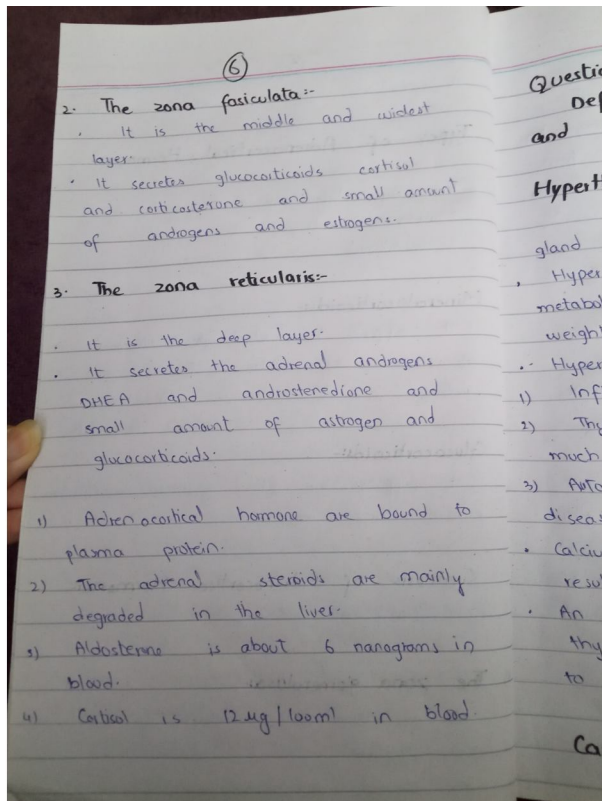 6
2. The zona fasiculata:-
. It is the middle and widest
layer.
. It secretes glucocorticoids cortisol
and corticosterone and small amount
of androgens and estrogens.
3. The zona reticularis:-
. It is the deep layer.
. It secretes the adrenal androgens
DHEA and androstenedione and
small amount of astrogen and
glucocorticoids.
1) Adrenocortical hormone are bound to
plasma protein.
2) The adrenal steroids are mainly
degraded in the liver.
3) Aldosterone is about 6 nanograms in
blood.
4) Cortisol is 12 µg/100ml in blood.
Questio
Def
and
Hypert
gland
. Hyper
metabol
weigh
.. Hyper
1) Inf
2) Thy
much
3) Auto
diseas
. Calciu
resu
. An
thy
to
Ca